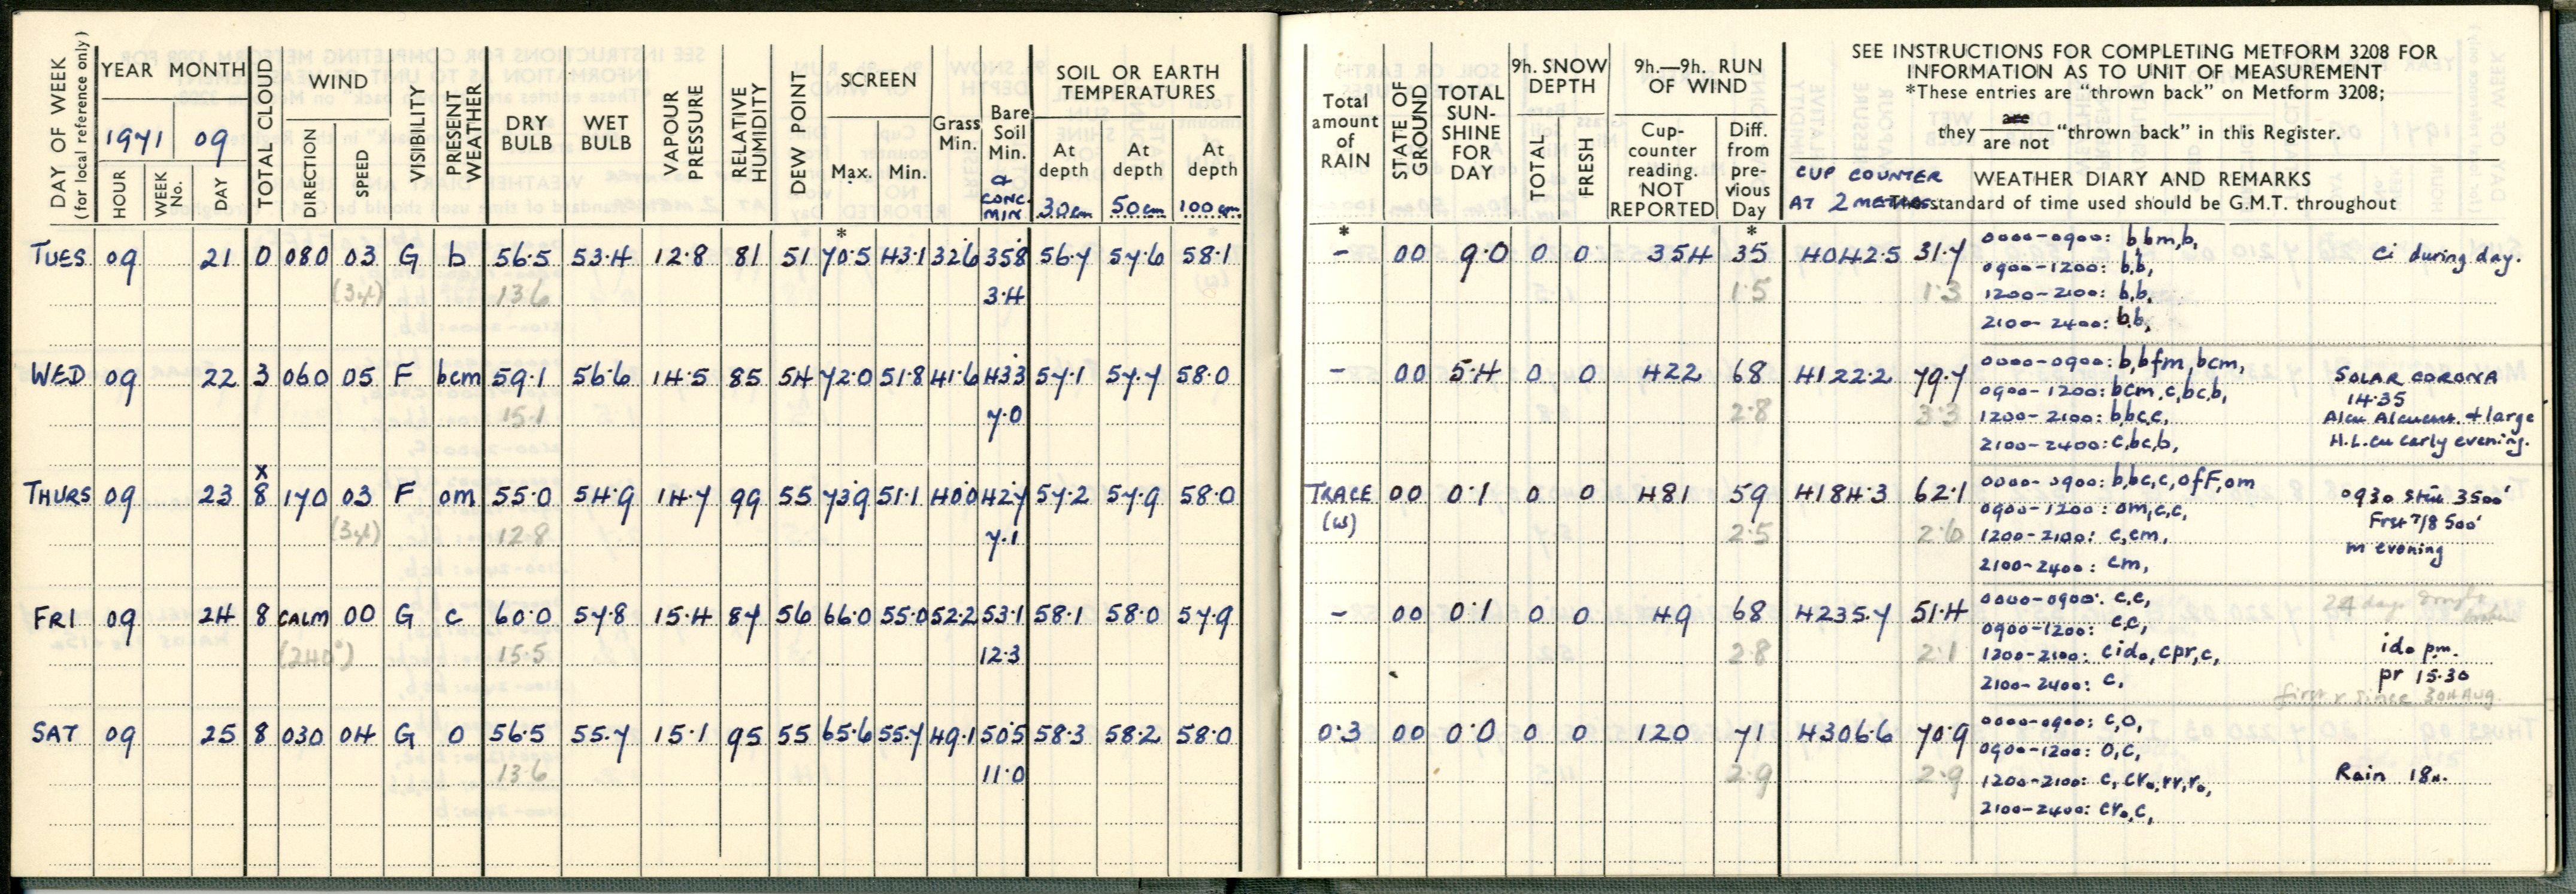 DAY OF WEEK
(for local reference only)
YEAR MONTH
1971 09
HOUR
WEEK No.
DAY
TOTAL CLOUD
WIND
DIRECTION
SPEED
VISIBILITY
PRESENT WEATHER
DRY BULB
WET BULB
VAPOUR PRESSURE
RELATIVE HUMIDITY
DEW POINT
SCREEN
Max. Min.
Grass Min.
Bare Soil Min.
CONC. MIN
SOIL OR EARTH TEMPERATURES
At depth 30cm
At depth 50cm
At depth 100cm
TUES 09 21 0 080 03 G b 56.5 53.4 12.8 81 51 70.5 43.1 32.6 35.8 56.7 57.6 58.1
(34) 13.6 3.4
WED 09 22 3 060 05 F bcm 59.1 56.6 14.5 85 54 72.0 51.8 41.6 43.3 57.1 57.7 58.0
15.1 7.0
x
THURS 09 23 8 170 03 F om 55.0 54.9 14.7 99 55 73.9 51.1 40.0 42.7 57.2 57.9 58.0
(34) 12.8 7.1
FRI 09 24 8 CALM 00 G c 60.0 57.8 15.4 87 56 66.0 55.0 52.2 53.1 58.1 58.0 57.9
(240°) 15.5 12.3
SAT 09 25 8 030 04 G o 56.5 55.7 15.1 95 55 65.6 55.7 49.1 50.5 58.3 58.2 58.0
13.6 11.0
Total amount of RAIN
STATE OF GROUND
TOTAL SUN-SHINE FOR DAY
9h. SNOW DEPTH
TOTAL
FRESH
9h.—9h. RUN OF WIND
Cup-counter reading. NOT REPORTED
Diff. from pre-vious Day
SEE INSTRUCTIONS FOR COMPLETING METFORM 3208 FOR
INFORMATION AS TO UNIT OF MEASUREMENT
*These entries are "thrown back" on Metform 3208;
they are / are not "thrown back" in this Register.
CUP COUNTER
AT 2 METRES
WEATHER DIARY AND REMARKS
The standard of time used should be G.M.T. throughout
- 00 9.0 0 0 354 35 4042.5 31.7
1.5 1.3
0000-0900: b bm,b,
0900-1200: b,b,
1200-2100: b,b,
2100-2400: b,b,
Ci during day.
- 00 5.4 0 0 422 68 4122.2 79.7
2.8 3.3
0000-0900: b,bfm,bcm,
0900-1200: bcm,c,bc,b,
1200-2100: b,bc,c,
2100-2400: c,bc,b,
SOLAR CORONA
14.35
+ large
early evening.
TRACE 00 0.1 0 0 481 59 4184.3 62.1
(w) 2.5 2.6
0000-0900: b,bc,c,ofF,om
0900-1200: om,c,c,
1200-2100: c,cm,
2100-2400: cm,
0930 3500'
7/8 500'
m evening
- 00 0.1 0 0 49 68 4235.7 51.4
2.8 2.1
0000-0900: c,c,
0900-1200: c,c,
1200-2100: cido,cpr,c,
2100-2400: c,
24 day
ido pm.
pr 15.30
first r since 30th Aug.
0.3 00 0.0 0 0 120 71 4306.6 70.9
2.9 2.9
0000-0900: c,o,
0900-1200: o,c,
1200-2100: c,cro,rr,ro,
2100-2400: cro,c,
Rain 18